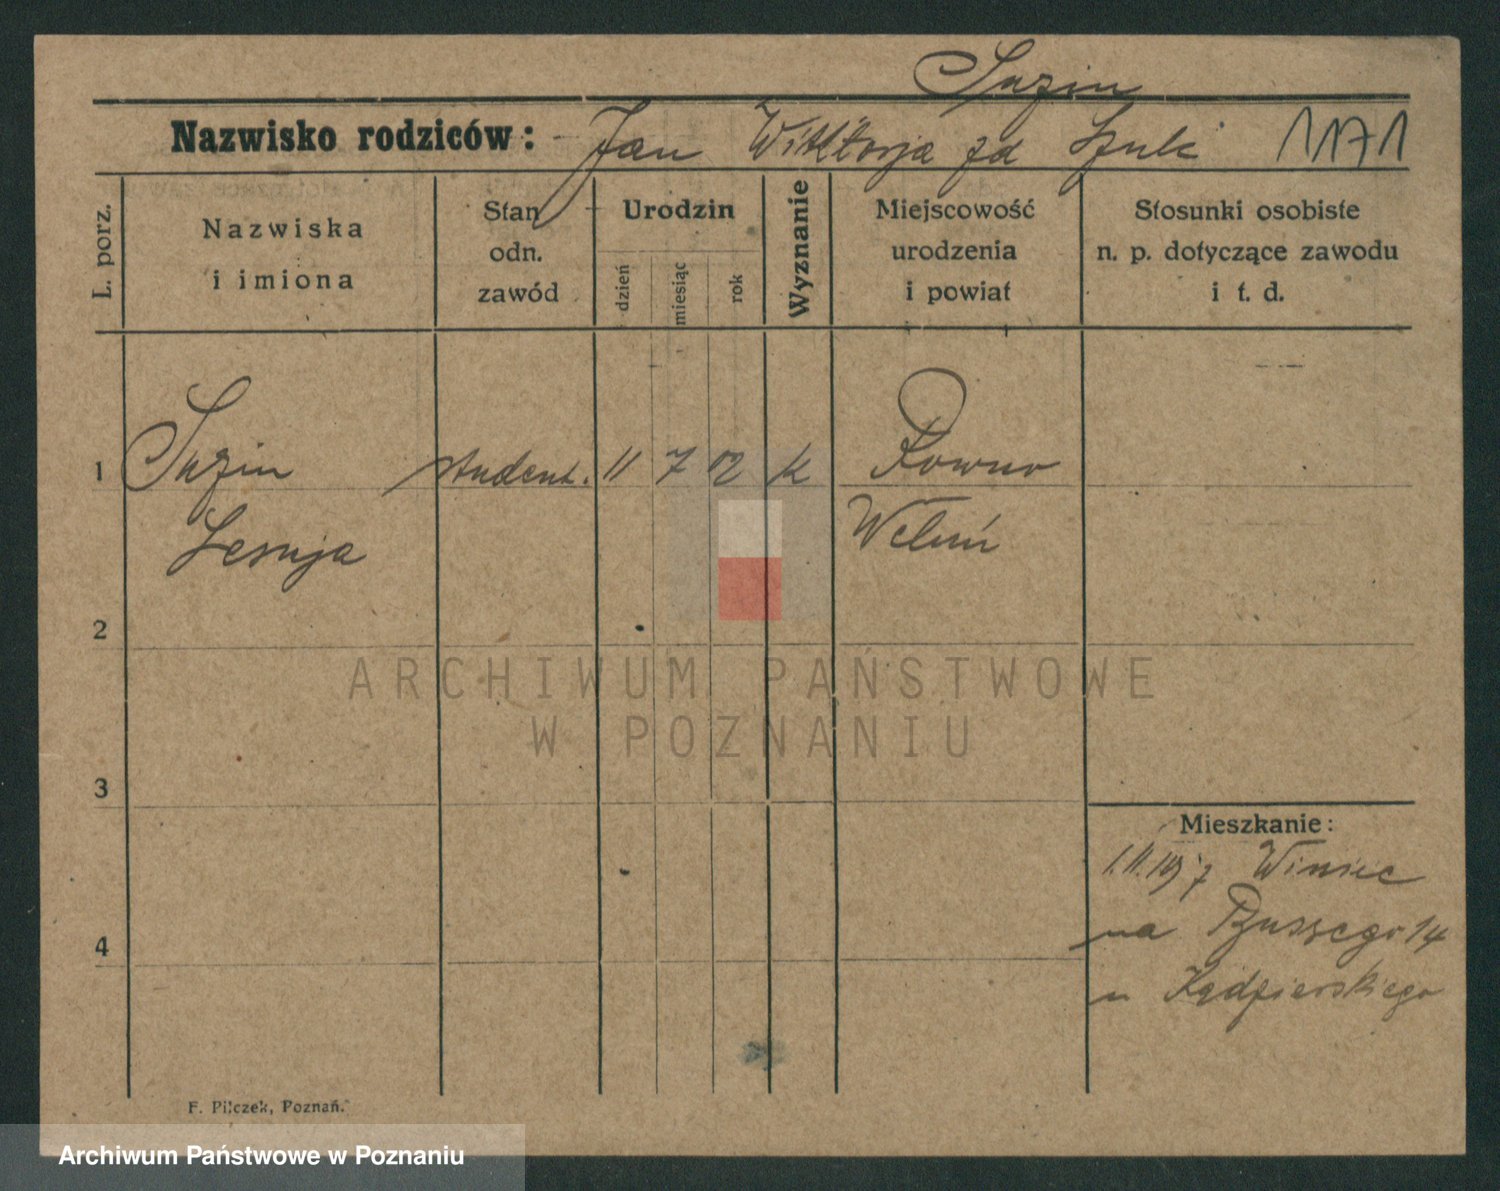 Suzin
Nazwisko rodziców: Jan Wiktorja zd Szulc 1171
L. porz.
Nazwiska
i imiona
Stan
odn.
zawód
Urodzin
dzień
miesiąc
rok
Wyznanie
Miejscowość
urodzenia
i powiat
Stosunki osobiste
n. p. dotyczące zawodu
i t. d.
1 Suzin student. 11 7 02 k Rowno
Wełuń
2
3
4
ARCHIWUM PAŃSTWOWE
W POZNANIU
Mieszkanie:
Winiec
na 14
u Kądzierskiego
F. Pilczek, Poznań.
Archiwum Państwowe w Poznaniu